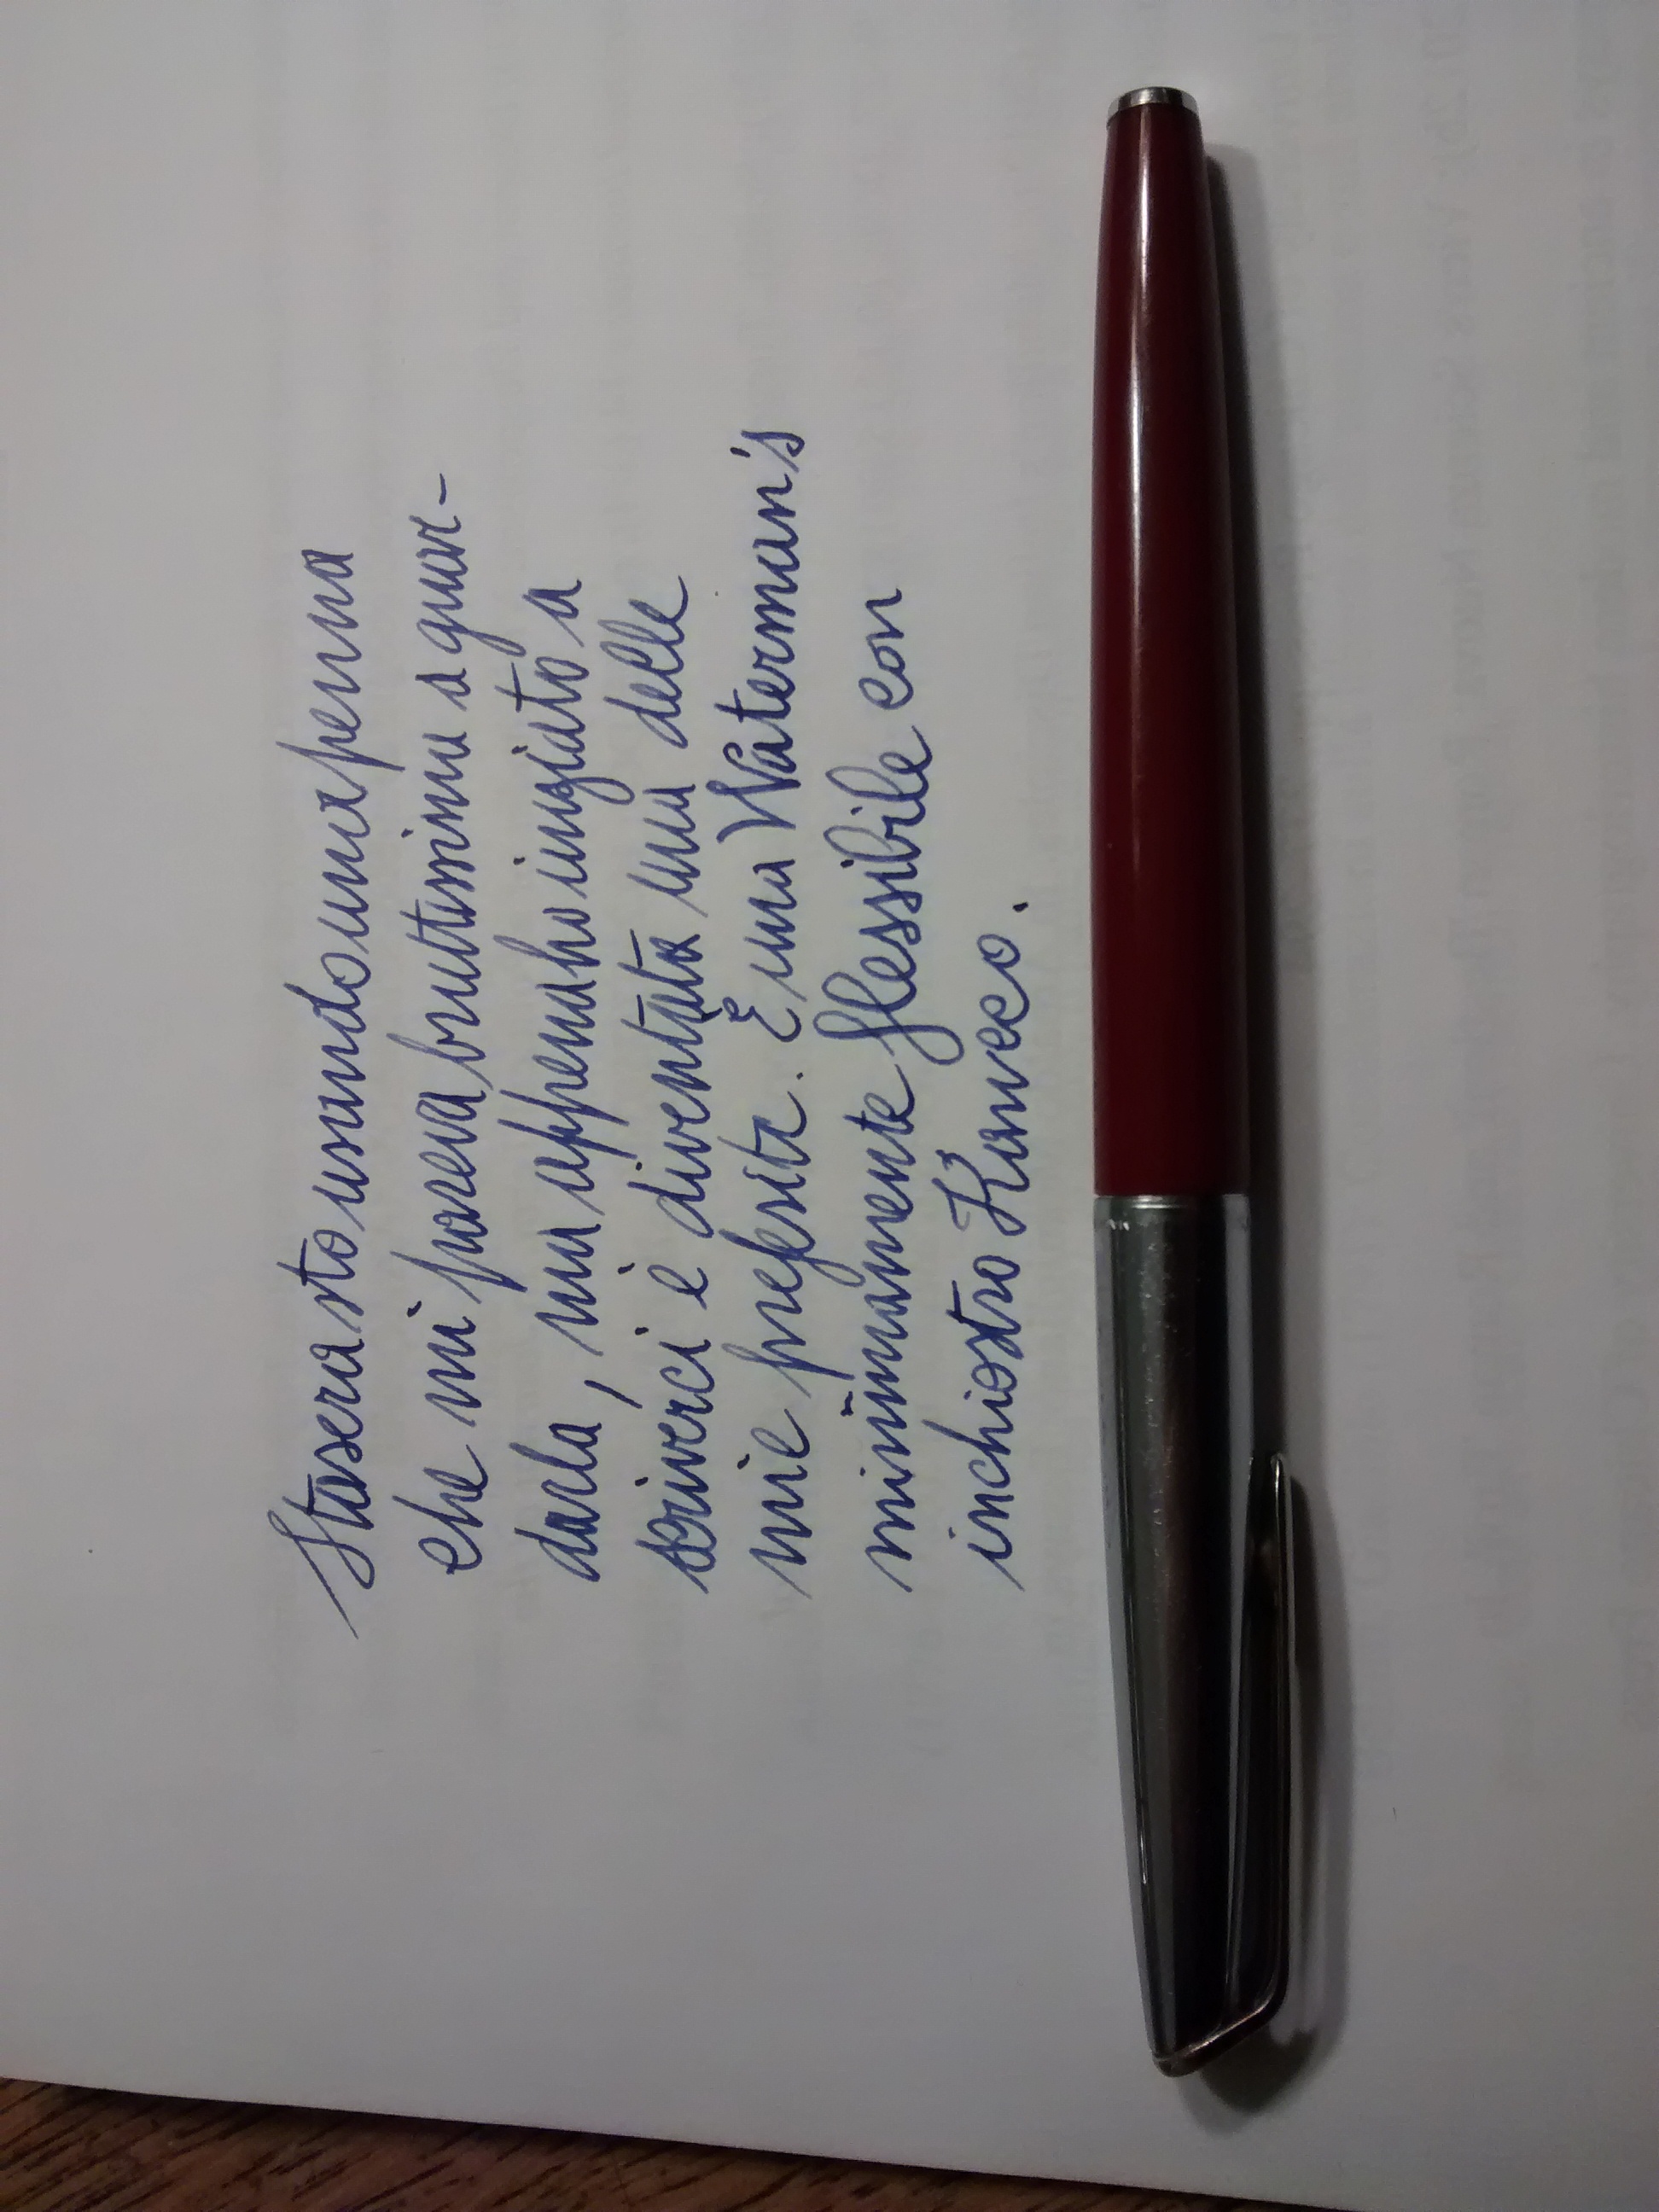 Stasera sto usando una penna
che mi pareva bruttissima a guar-
darla, ma appena ho iniziato a
scriverci è diventata una delle
mie preferite. È una Waterman's
minimamente flessibile con
inchiostro Kaweco.